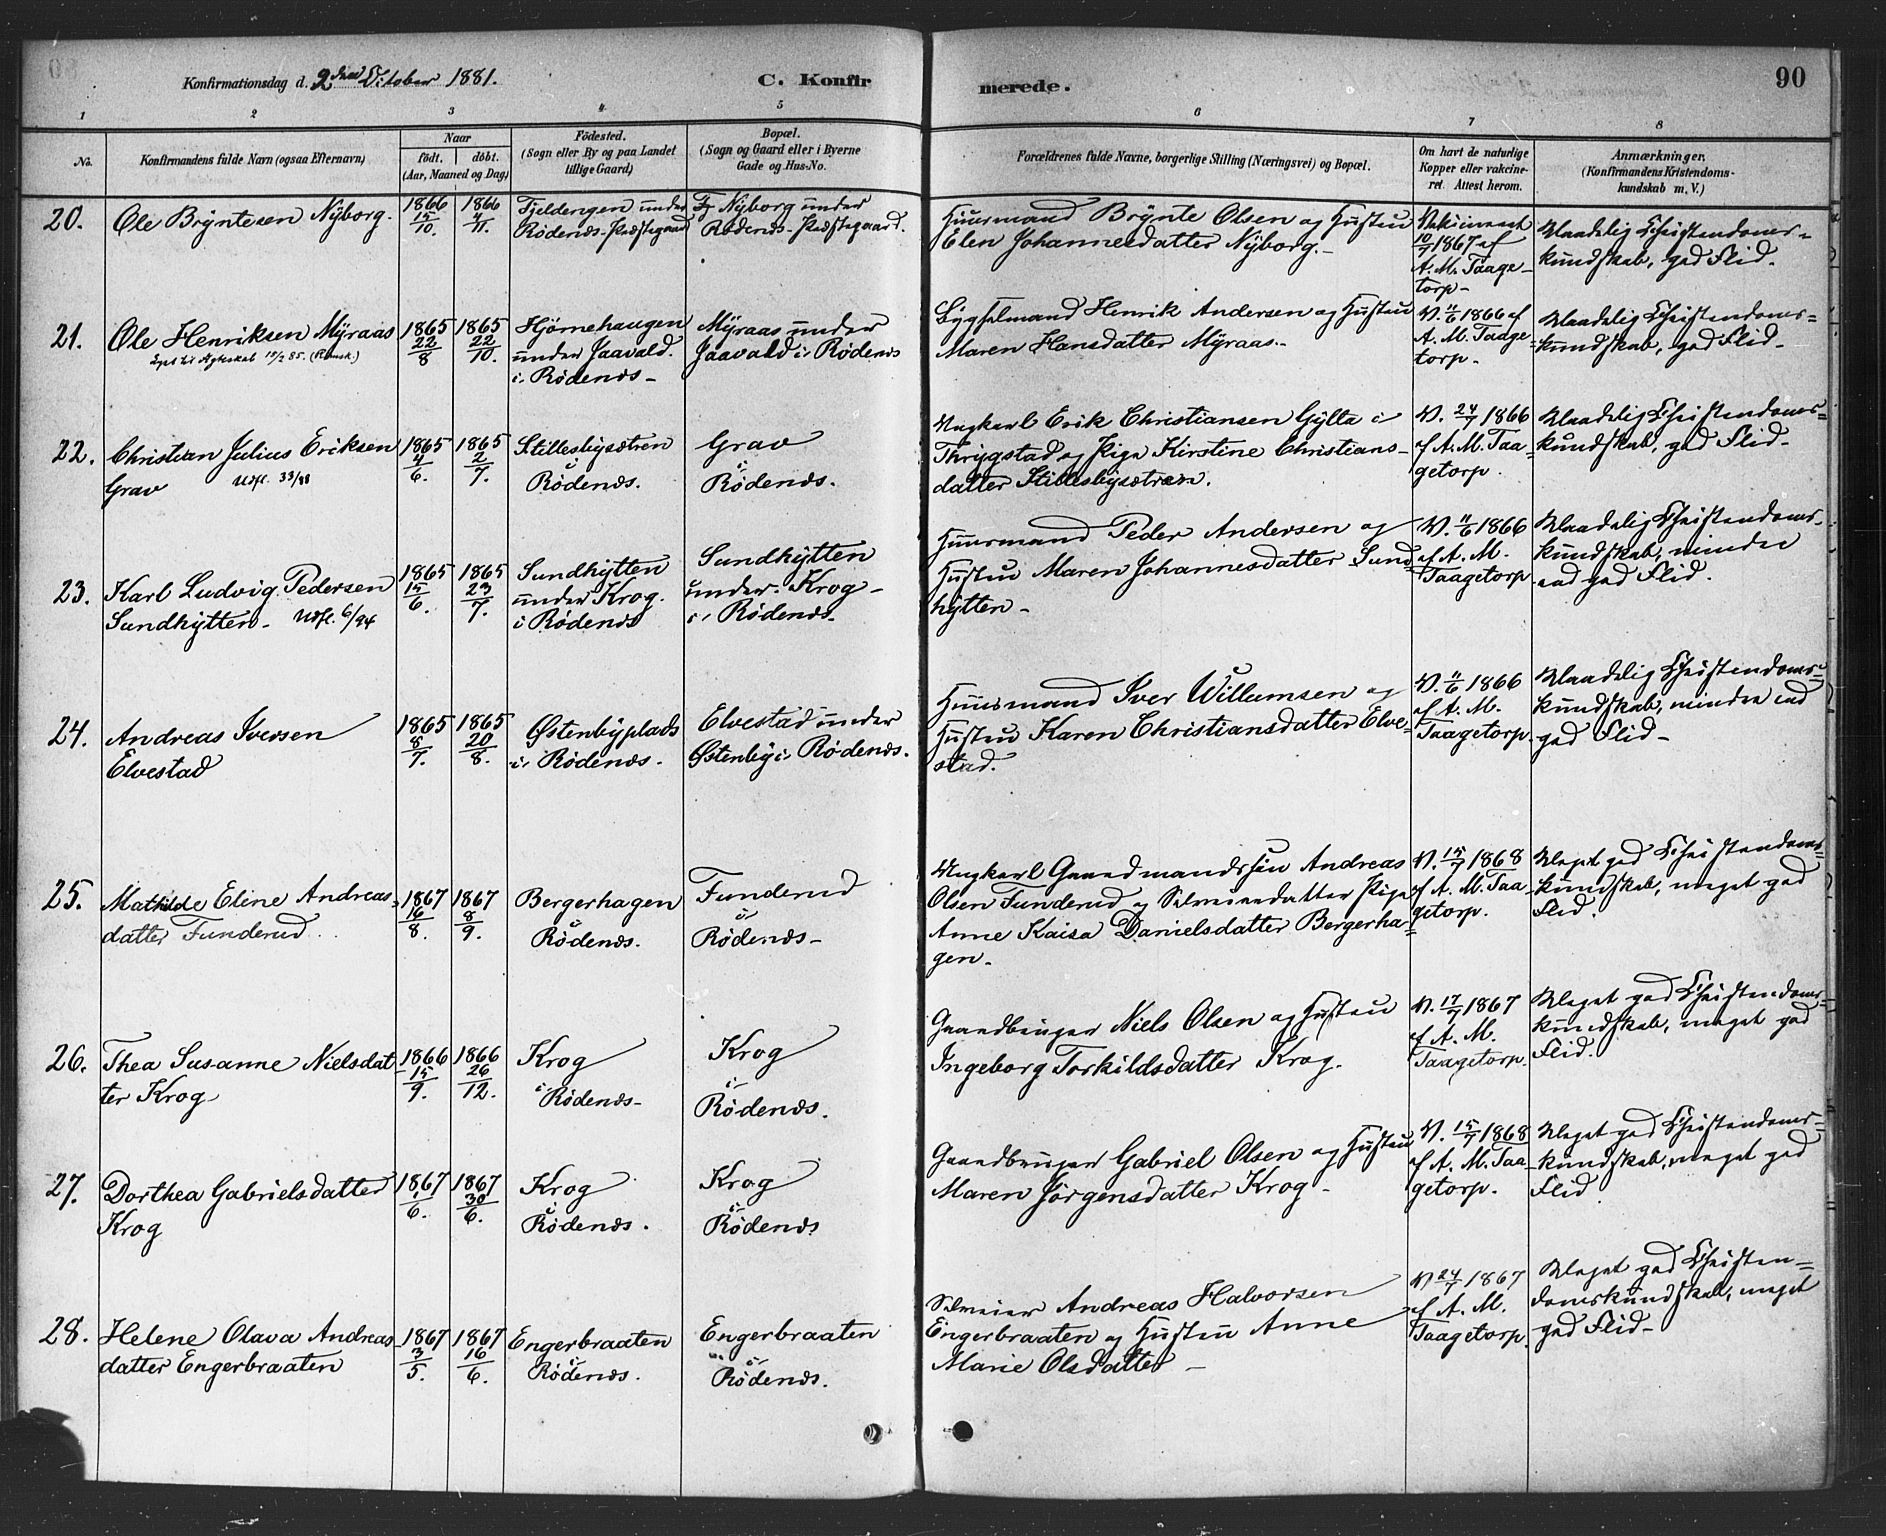 Konfirmationsdag d. 2den October 1881.
C. Konfirmerede.
90
1 2 3 4 5 6 7 8
No.
Konfirmandens fulde Navn (ogsaa Efternavn)
Naar
födt. döbt.
(Aar, Maaned og Dag)
Födested.
(Sogn eller By og paa Landet
tillige Gaard)
Bopæl.
(Sogn og Gaard eller i Byerne
Gade og Hus-No.
Forældrenes fulde Navne, borgerlige Stilling (Næringsvei) og Bopæl.
Om havt de naturlige
Kopper eller vakcine-
ret. Attest herom.
Anmærkninger.
(Konfirmandens Kristendoms-
kundskab m. V.)
20.
Ole Bryntesen Nyborg.
1866 15/10.
1866 4/11.
Fjeldengen under
Rödenæs-Præstegaard
Nyborg under
Rödenæs-Præstegaard.
Huusmand Brynte Olsen og Hustru
Elen Johannesdatter Nyborg.-
Vakcineret
10/7 1867 af
A. M. Taage-
torp-
Maadelig Christendoms-
kundskab, god Flid.
21.
Ole Henriksen Myraas
1865 22/8
1865 22/10.
Hjørnehaugen
under Jaavald.
i Rödenæs-
Myraas under
Jaavald i Rödenæs
Bygselmand Henrik Andersen og Hustru
Maren Hansdatter Myraas.-
V. 11/6 1866 af
A. M. Taage-
torp-
Maadelig Christendoms-
kundskab, god Flid-
22.
Christian Julius Eriksen
Grav Udfl. 33/88
1865 4/6.
1865 2/7.
Stillesbysætren
i
Rödenæs.
Grav
i
Rödenæs.
Ungkarl Erik Christiansen Gylta i
Thrygstad og Pige Kirstine Christians-
datter Stillesbysætren.
V. 24/7 1866
af A. M. Taa-
getorp.
Maadelig Christendoms-
kundskab, god Flid-
23.
Karl Ludvig Pedersen
Sundhytten- Udfl. 6/94
1865 15/6.
1865 23/7.
Sundhytten
under Krog.
i Rödenæs
Sundhytten
under Krog-
i Rödenæs.
Huusmand Peder Andersen og
Hustru Maren Johannesdatter Sund
hytten-
V. 11/6 1866
af A. M.
Taagetorp
Maadelig Christendoms-
kundskab, mindre
end god Flid.
24.
Andreas Iversen
Elvestad
1865 8/7.
1865 20/8.
Østenbyplads
i Rödenæs-
Elvestad under
Østenby i Rödenæs.
Huusmand Iver Willumsen og
Hustru Karen Christiansdatter Elve-
stad.
V. 11/6 1866
af A. M.
Taagetorp.
Maadelig Christendoms-
kundskab, mindre end
god Flid-
25.
Mathilde Eline Andreas-
datter Funderud.
1867 16/8.
1867 8/9.
Bergerhagen
i
Rödenæs.
Funderud
i
Rödenæs-
Ungkarl Gaardmandssøn Andreas
Olsen Funderud og Selveierdatter Pige
Anne Kaisa Danielsdatter Bergerha-
gen-
V. 15/7 1868
af A. M. Taa-
getorp.
Meget god Christendoms-
kundskab, meget god
Flid.
26.
Thea Susanne Nielsdat-
ter Krog
1866 15/9.
1866 26/12.
Krog
i Rödenæs-
Krog
i
Rödenæs.
Gaardbruger Niels Olsen og Hustru
Ingeborg Torkildsdatter Krog.
V. 17/7 1867
af A. M.
Taagetorp.
Meget god Christendoms-
kundskab, meget god
Flid.
27.
Dorthea Gabrielsdatter
Krog
1867 1/6.
1867 30/6.
Krog
i
Rödenæs.
Krog
i
Rödenæs
Gaardbruger Gabriel Olsen og Hustru
Maren Jørgensdatter Krog-
V. 15/7 1868
af A. M. Taa-
getorp.
Meget god Christendoms-
kundskab, meget god
Flid
28.
Helene Olava Andreas-
datter Engerbraaten
1867 3/5.
1867 16/6.
Engerbraaten
i
Rödenæs.
Engerbraaten
i
Rödenæs.
Selveier Andreas Halvorsen
Engerbraaten og Hustru Anne
Marie Olsdatter-
V 24/7 1867
af A. M.
Taagetorp.
Meget god Christen-
domskundskab, meget
god Flid-